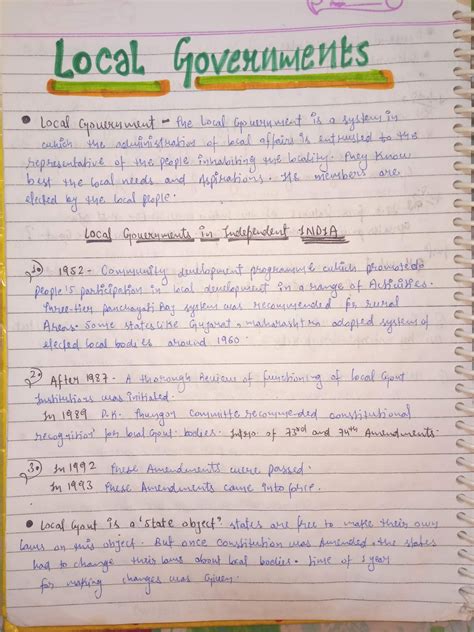 Local Governments
• Local Government - The Local Government is a system in
which the administration of local affairs is entrusted to the
representative of the people inhabiting the locality. They know
best the local needs and Aspirations. The members are
elected by the local people.
Local Governments in Independent INDIA
1. 1952- Community development programme which promoted
people's participation in local development in a range of Activities.
Three-tier panchayati Raj system was recommended for Rural
Areas. Some states like Gujarat, maharashtra adopted system of
elected local bodies around 1960.
2. After 1987 - A thorough Review of functioning of local Govt
Institutions was initiated.
In 1989 P.K. Thungon Committee recommended constitutional
recognition for local Govt. bodies. Intro. of 73rd and 74th Amendments.
3. In 1992 These Amendments were passed.
In 1993 These Amendments came into force.
• Local Govt is a 'State object' states are free to make their own
laws on this object. But once Constitution was Amended. the states
had to change their laws about local bodies. time of 1 year
for making changes was Given.